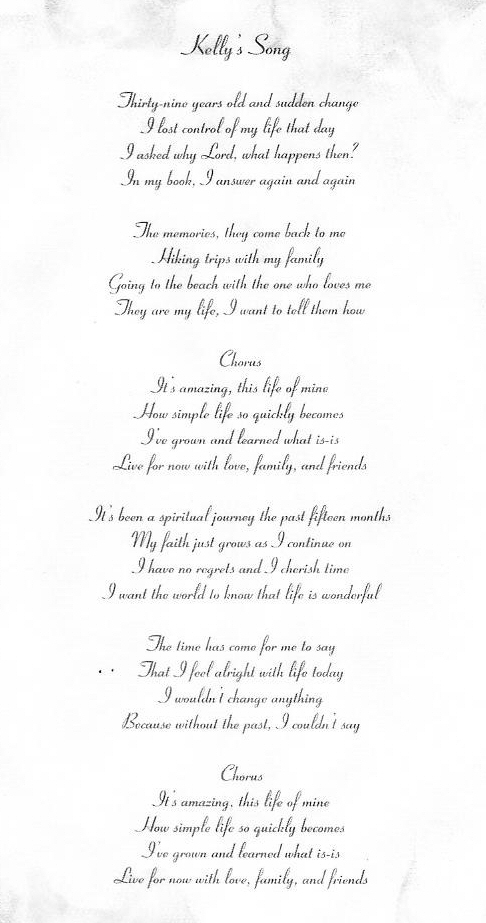 Kelly's Song
Thirty-nine years old and sudden change
I lost control of my life that day
I asked why Lord, what happens then?
In my book, I answer again and again
The memories, they come back to me
Hiking trips with my family
Going to the beach with the one who loves me
They are my life, I want to tell them how
Chorus
It's amazing, this life of mine
How simple life so quickly becomes
I've grown and learned what is-is
Live for now with love, family, and friends
It's been a spiritual journey the past fifteen months
My faith just grows as I continue on
I have no regrets and I cherish time
I want the world to know that life is wonderful
The time has come for me to say
That I feel alright with life today
I wouldn't change anything
Because without the past, I couldn't say
Chorus
It's amazing, this life of mine
How simple life so quickly becomes
I've grown and learned what is-is
Live for now with love, family, and friends